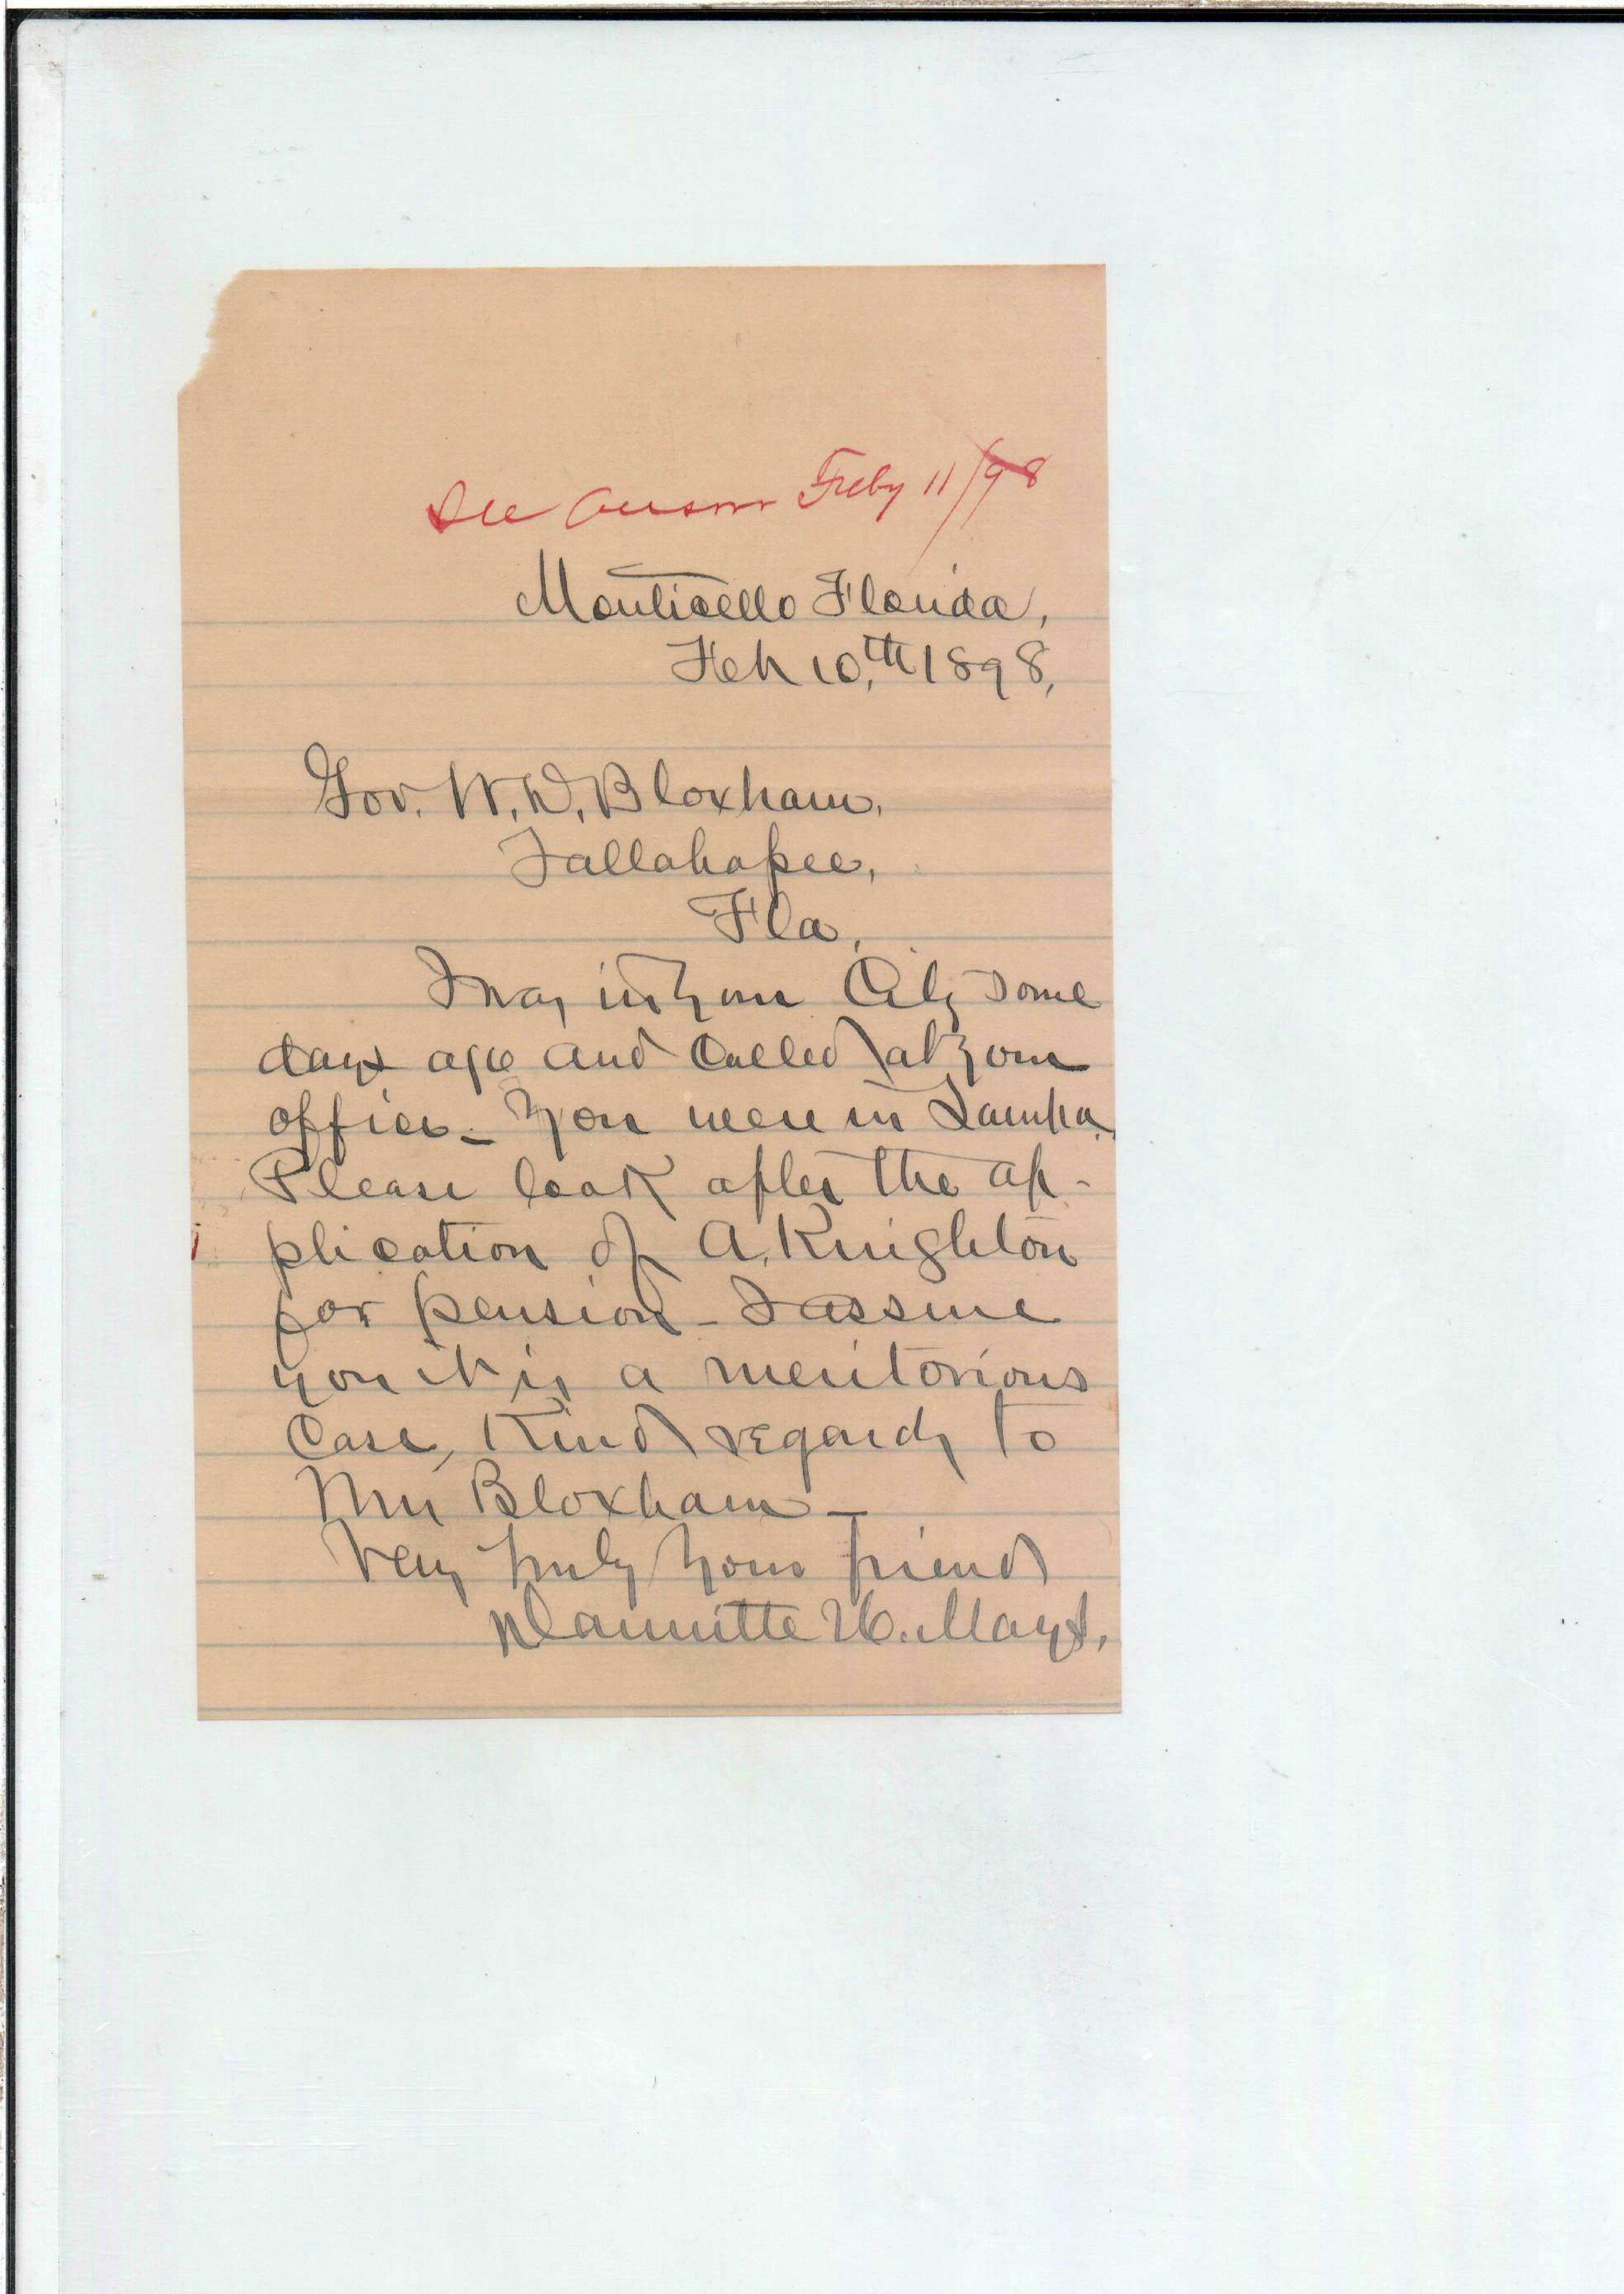 See answer Feby 11/98
Monticello Florida,
Feb 10,th 1898,
Gov. W. D. Bloxham,
Tallahassee,
Fla,
I was in your City some
days ago and called at your
office – you were in Tampa.
Please look after the ap-
plication of A. Knighton
for pension – I assure
you it is a meritorious
case, Kind regards to
Mrs Bloxham –
Very truly your friend
Dannitte H. Mays,